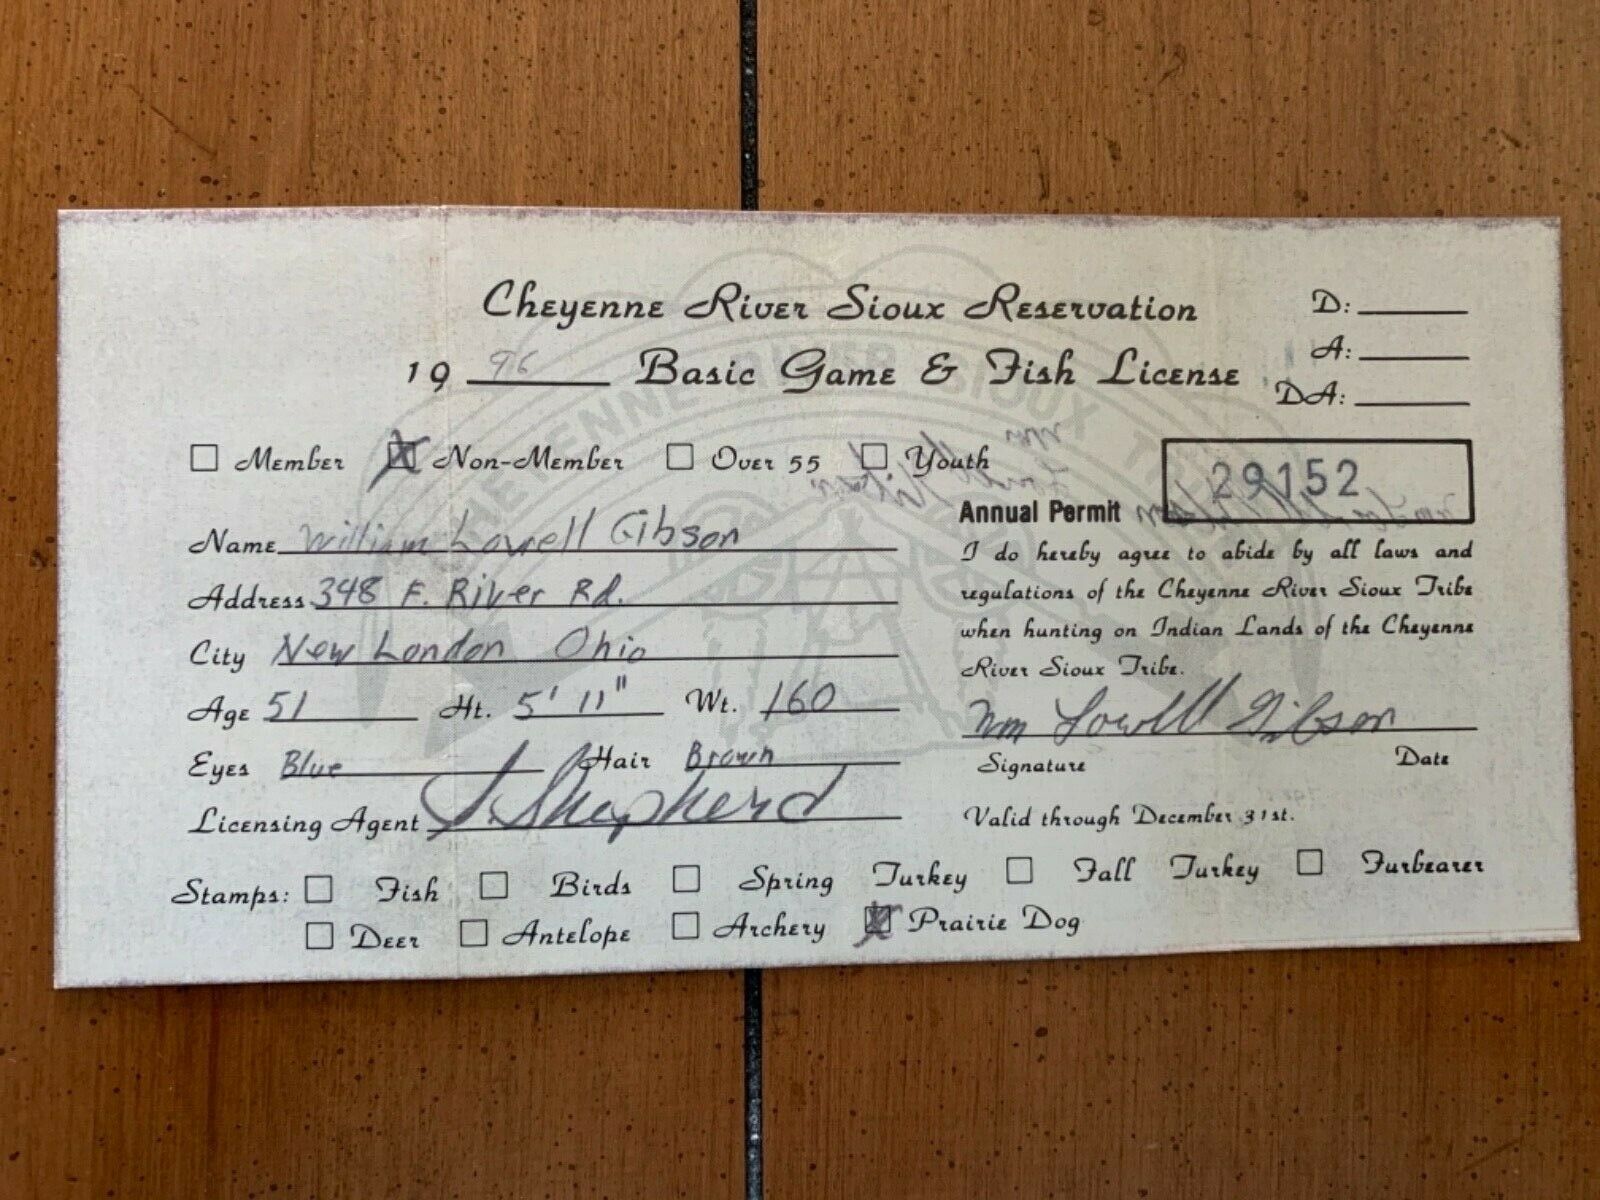 Cheyenne River Sioux Reservation
19 96 Basic Game & Fish License
D:
A:
DA:
Member X Non-Member Over 55 Youth
29152
Name William Lowell Gibson
Address 348 E. River Rd.
City New London Ohio
Age 51 Ht. 5' 11" Wt. 160
Eyes Blue Hair Brown
Licensing Agent J. Shepherd
Annual Permit
I do hereby agree to abide by all laws and
regulations of the Cheyenne River Sioux Tribe
when hunting on Indian Lands of the Cheyenne
River Sioux Tribe.
Wm Lowell Gibson
Signature Date
Valid through December 31st.
Stamps: Fish Birds Spring Turkey Fall Turkey Furbearer
Deer Antelope Archery X Prairie Dog
CHEYENNE RIVER SIOUX TRIBE